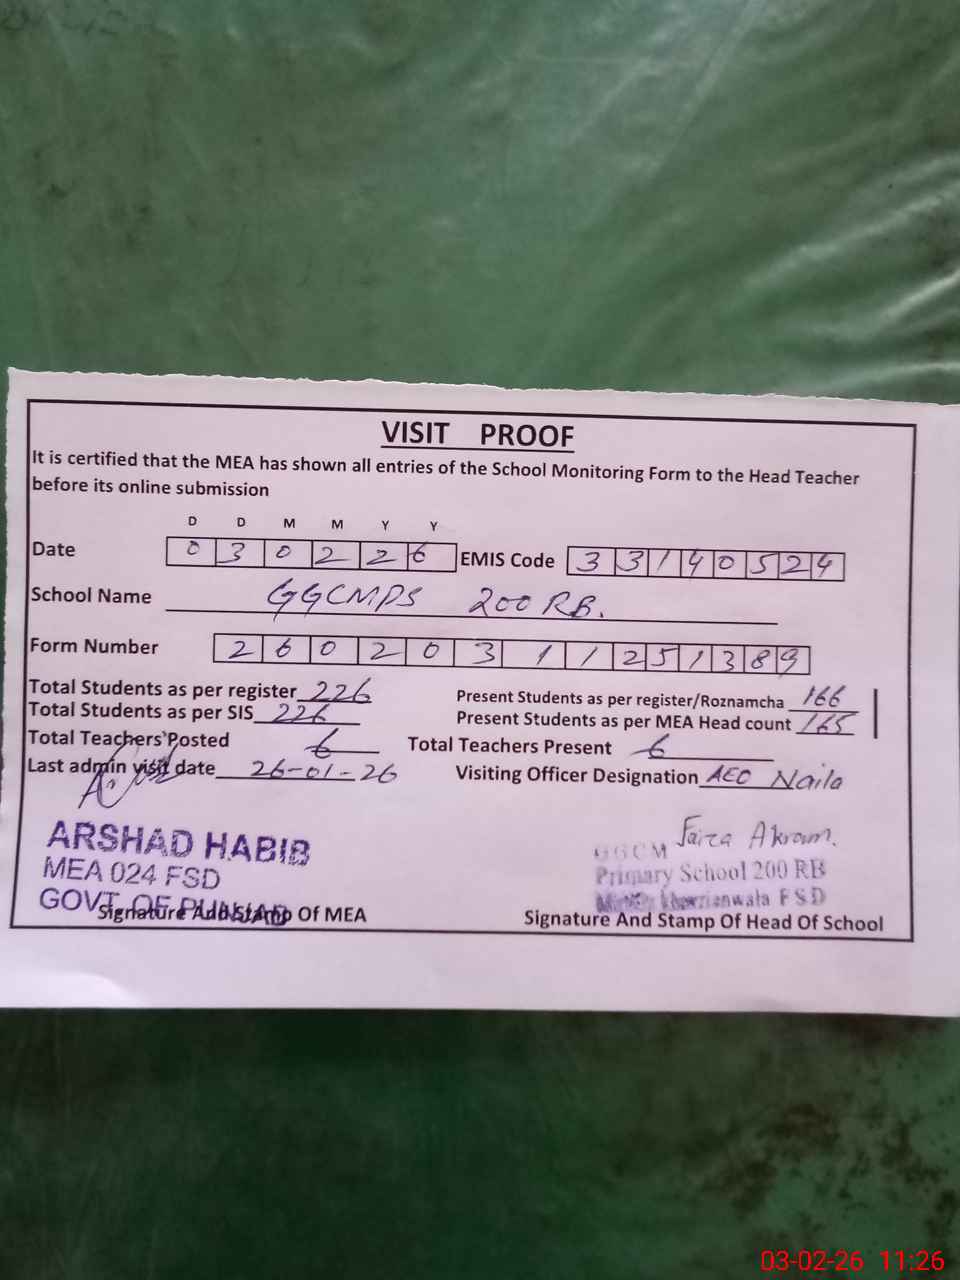 VISIT PROOF
It is certified that the MEA has shown all entries of the School Monitoring Form to the Head Teacher
before its online submission
D D M M Y Y
Date 0 3 0 2 2 6 EMIS Code 3 3 1 4 0 5 2 4
School Name GGCMPS 200 RB.
Form Number 2 6 0 2 0 3 1 1 2 5 1 3 8 9
Total Students as per register 226 Present Students as per register/Roznamcha 166
Total Students as per SIS 226 Present Students as per MEA Head count 165
Total Teachers Posted 6 Total Teachers Present 6
Last admin visit date 26-01-26 Visiting Officer Designation AEO Naila
ARSHAD HABIB
MEA 024 FSD
GOVT. OF PUNJAB
Signature And Stamp Of MEA
Faiza Akram.
GGCM
Primary School 200 RB
khurrianwala FSD
Signature And Stamp Of Head Of School
03-02-26 11:26